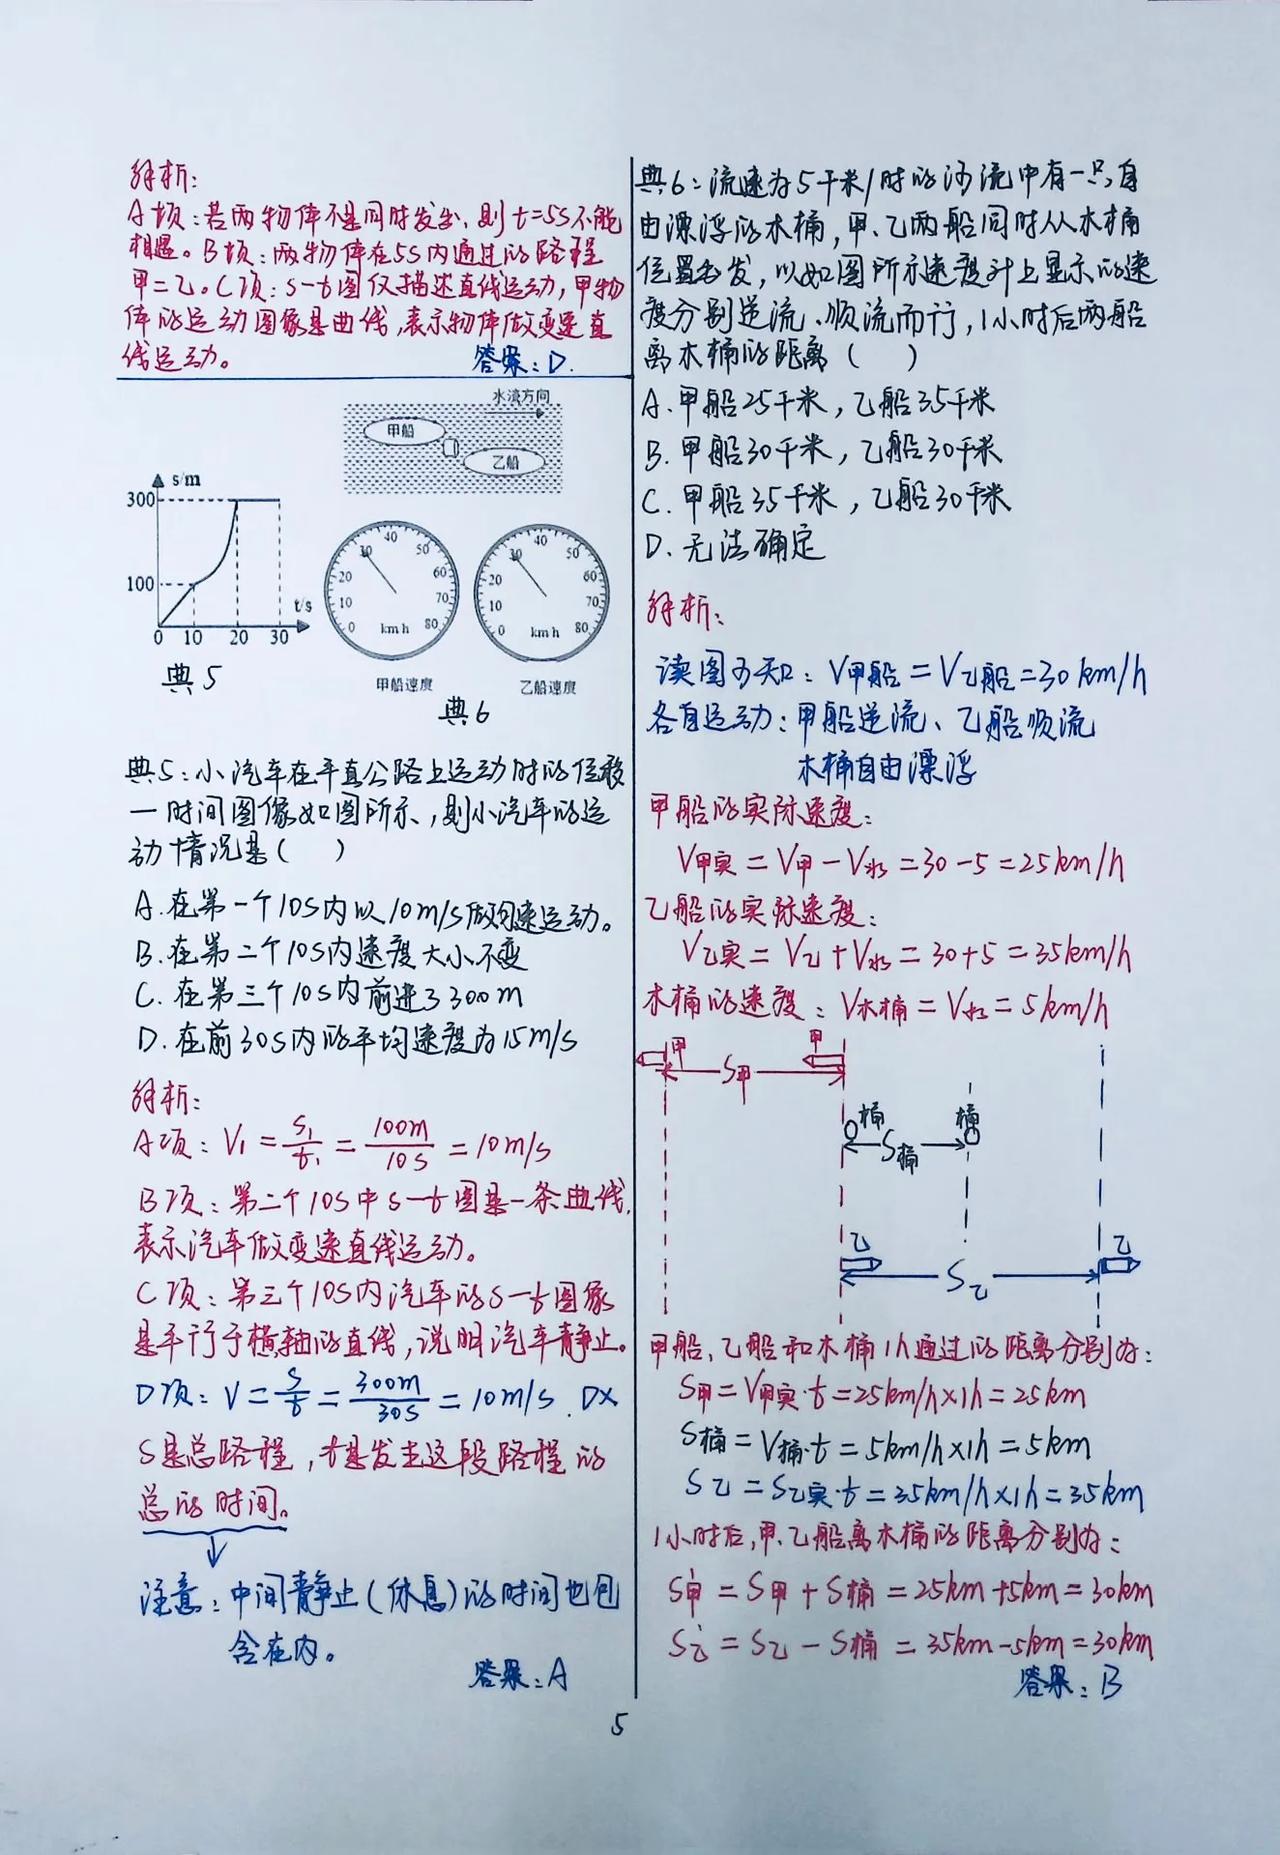 解析:
A项:若两物体不是同时发出,则t=5s不能
相遇。B项:两物体在5s内通过的路程
甲=乙。C项:s-t图仅描述直线运动,甲物
体的运动图像是曲线,表示物体做变速直
线运动。 答案:D.
水流方向
甲船
乙船
s/m
300
100
t/s
0 10 20 30
典5
0 10 20 30 40 50 60 70 80
km h
甲船速度
0 10 20 30 40 50 60 70 80
km h
乙船速度
典6
典5:小汽车在平直公路上运动时的位移
一时间图像如图所示,则小汽车的运
动情况是( )
A.在第一个10s内以10m/s做匀速运动。
B.在第二个10s内速度大小不变
C.在第三个10s内前进了300m
D.在前30s内的平均速度为15m/s
解析:
A项:V₁=s₁/t₁=100m/10s=10m/s
B项:第二个10s中s-t图是一条曲线,
表示汽车做变速直线运动。
C项:第三个10s内汽车的s-t图像
是平行于横轴的直线,说明汽车静止。
D项:V=s/t=300m/30s=10m/s.D×
S是总路程,t是发生这段路程的
总的时间。
注意:中间静止(休息)的时间也包
含在内。
答案:A
典6:流速为5千米/时的河流中有一只自
由漂浮的木桶,甲、乙两船同时从木桶
位置出发,以如图所示速度计上显示的速
度分别逆流、顺流而行,1小时后两船
离木桶的距离( )
A.甲船25千米,乙船35千米
B.甲船30千米,乙船30千米
C.甲船35千米,乙船30千米
D.无法确定
解析:
读图可知:V甲船=V乙船=30km/h
各自运动:甲船逆流、乙船顺流
木桶自由漂浮
甲船的实际速度:
V甲实=V甲-V水=30-5=25km/h
乙船的实际速度:
V乙实=V乙+V水=30+5=35km/h
木桶的速度:V木桶=V水=5km/h
甲 S甲 甲
桶 S桶 桶
乙 S乙 乙
甲船、乙船和木桶1h通过的距离分别为:
S甲=V甲实·t=25km/h×1h=25km
S桶=V桶·t=5km/h×1h=5km
S乙=S乙实·t=35km/h×1h=35km
1小时后,甲、乙船离木桶的距离分别为:
S甲'=S甲+S桶=25km+5km=30km
S乙'=S乙-S桶=35km-5km=30km
答案:B
5